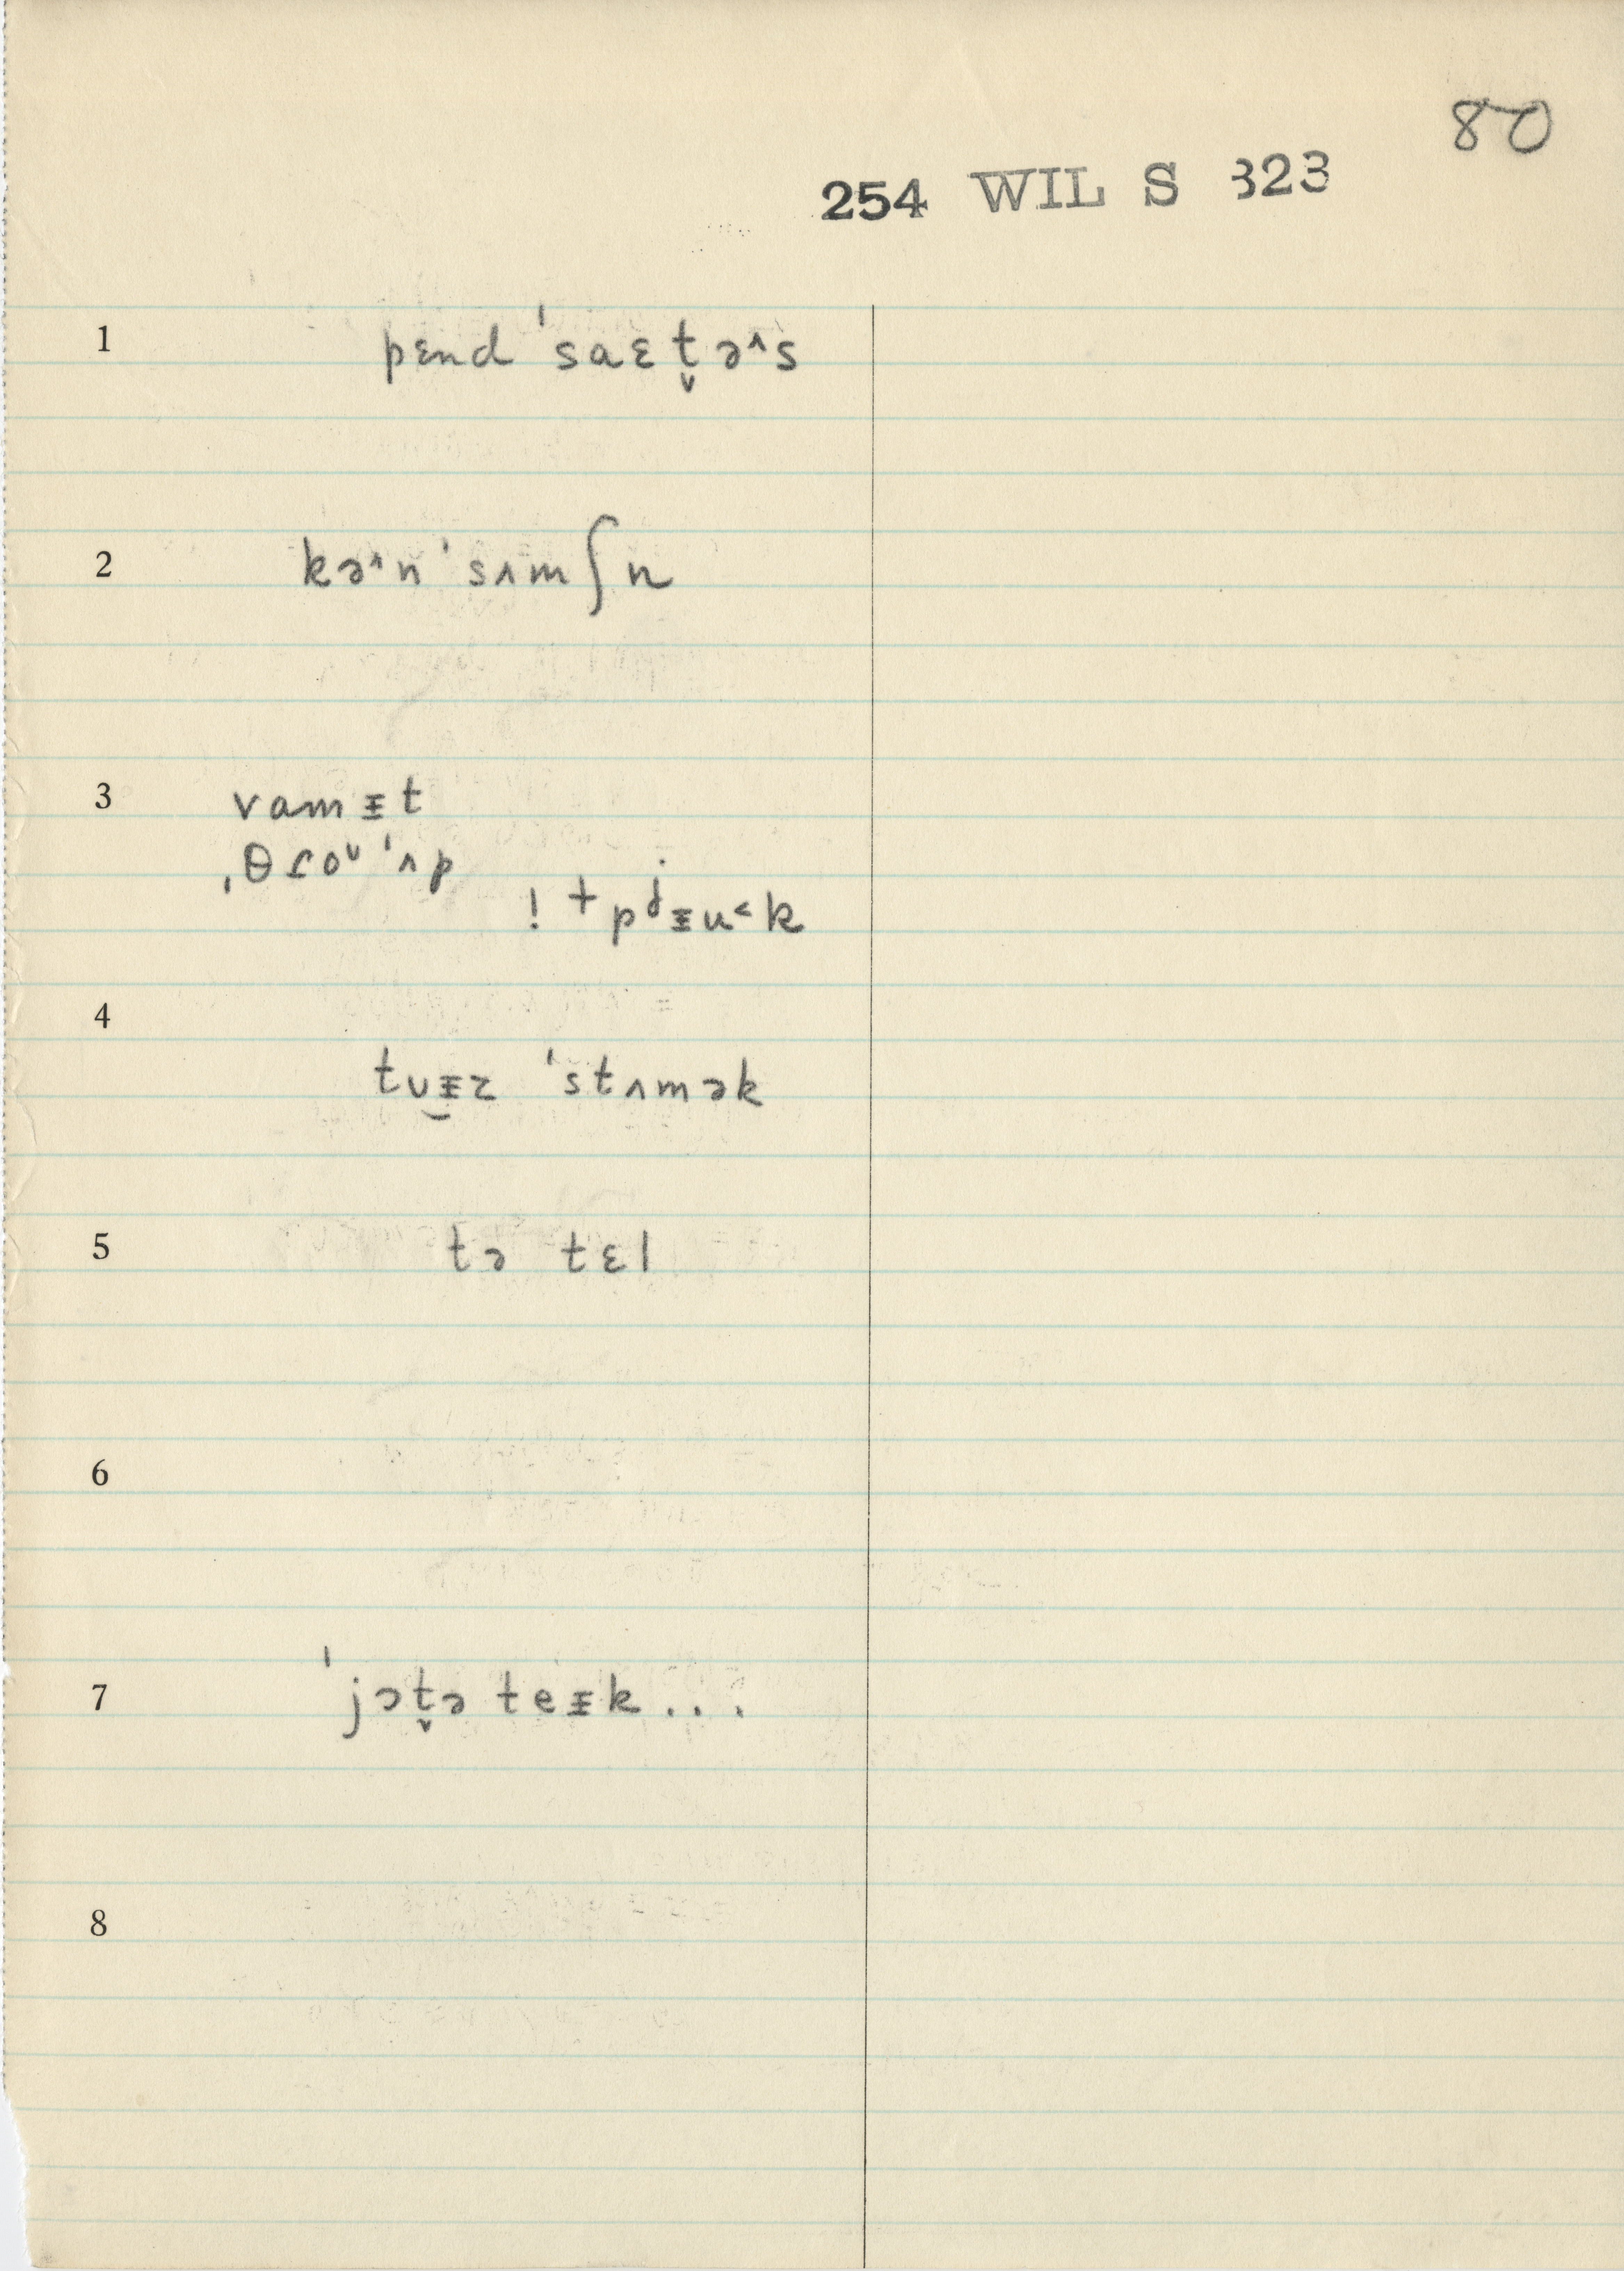 80
254 WIL S 323
1 pɛnd ˈsaɛt̬əʌs
2 kəʌn ˈsʌmʃn
3 vamᵻt
ˌθɾoᴜ ˈʌp
! + pʲᵻu˂k
4
tᴜ̯ᵻz ˈstʌmək
5 tə tɛl
6
7 ˈjɔt̬ə teᵻk...
8